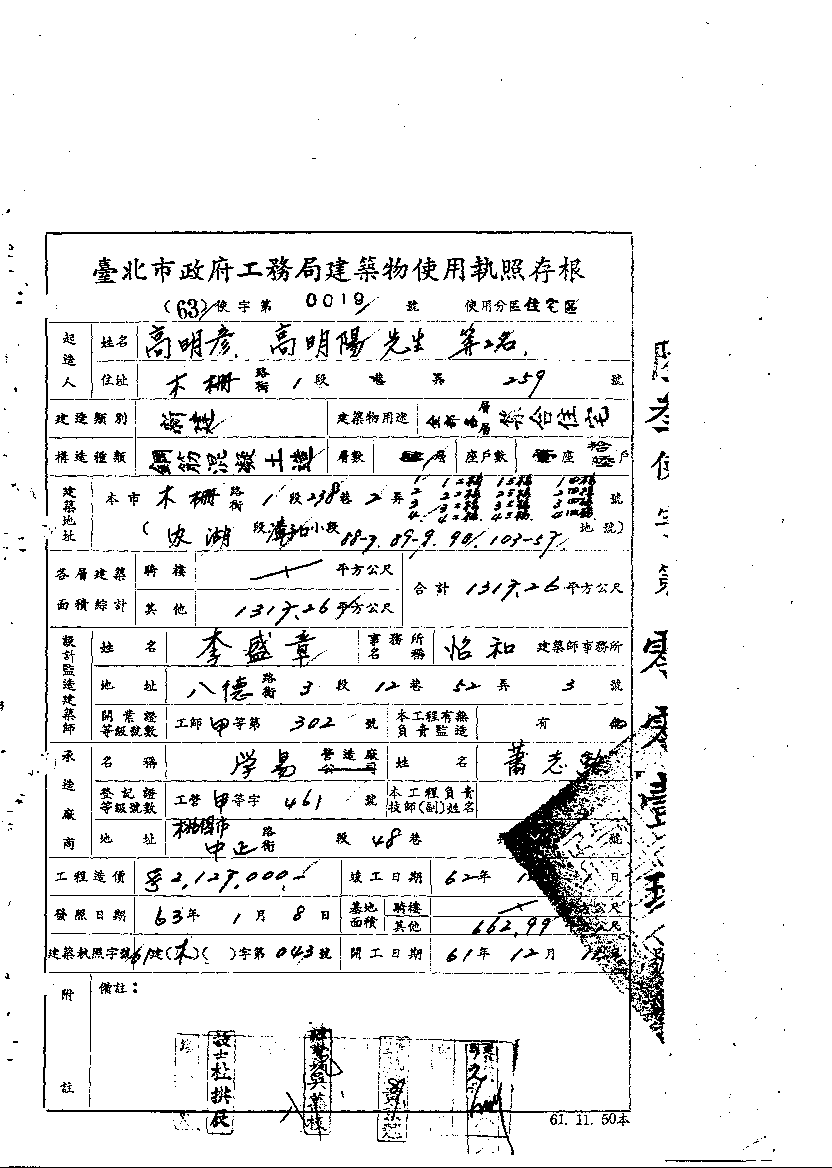 臺北市政府工務局建築物使用執照存根
(63)使字第 0019 號 使用分區 住宅區
起造人 姓名 高明彥 高明陽 先生 等2名
住址 木柵 路街 1 段 巷 弄 259 號
建造類別 新建 建築物用途 全部各層 綜合住宅
構造種類 鋼筋混凝土造 層數 層 座戶數 座 戶
建築地址 本市 木柵 路街 1 段 238 巷 2 弄 號
段 小段 88-7. 89-9. 90. 103-57 地號)
各層建築面積綜計 騎樓 平方公尺 合計 1317.26 平方公尺
其他 1317.26 平方公尺
設計監造建築師 姓名 李盛章 事務所名稱 怡和 建築師事務所
地址 八德 路街 3 段 12 巷 52 弄 3 號
開業證等級號數 工師 甲 等第 302 號 本工程有無負責監造 有
承造廠商 名稱 學易 營造廠公司 姓名 蕭志
登記證等級號數 工營 甲 等字 461 號 本工程負責技師(副)姓名
地址 桃園市 中正 路街 段 48 巷 號
工程造價 2,127,000.- 竣工日期 62年 日
發照日期 63年 1月 8日 基地面積 騎樓 公尺
其他 662.99 公尺
建築執照字號 61建(木)( )字第 043號 開工日期 61年 12月
附註 備註:
61. 11. 50本